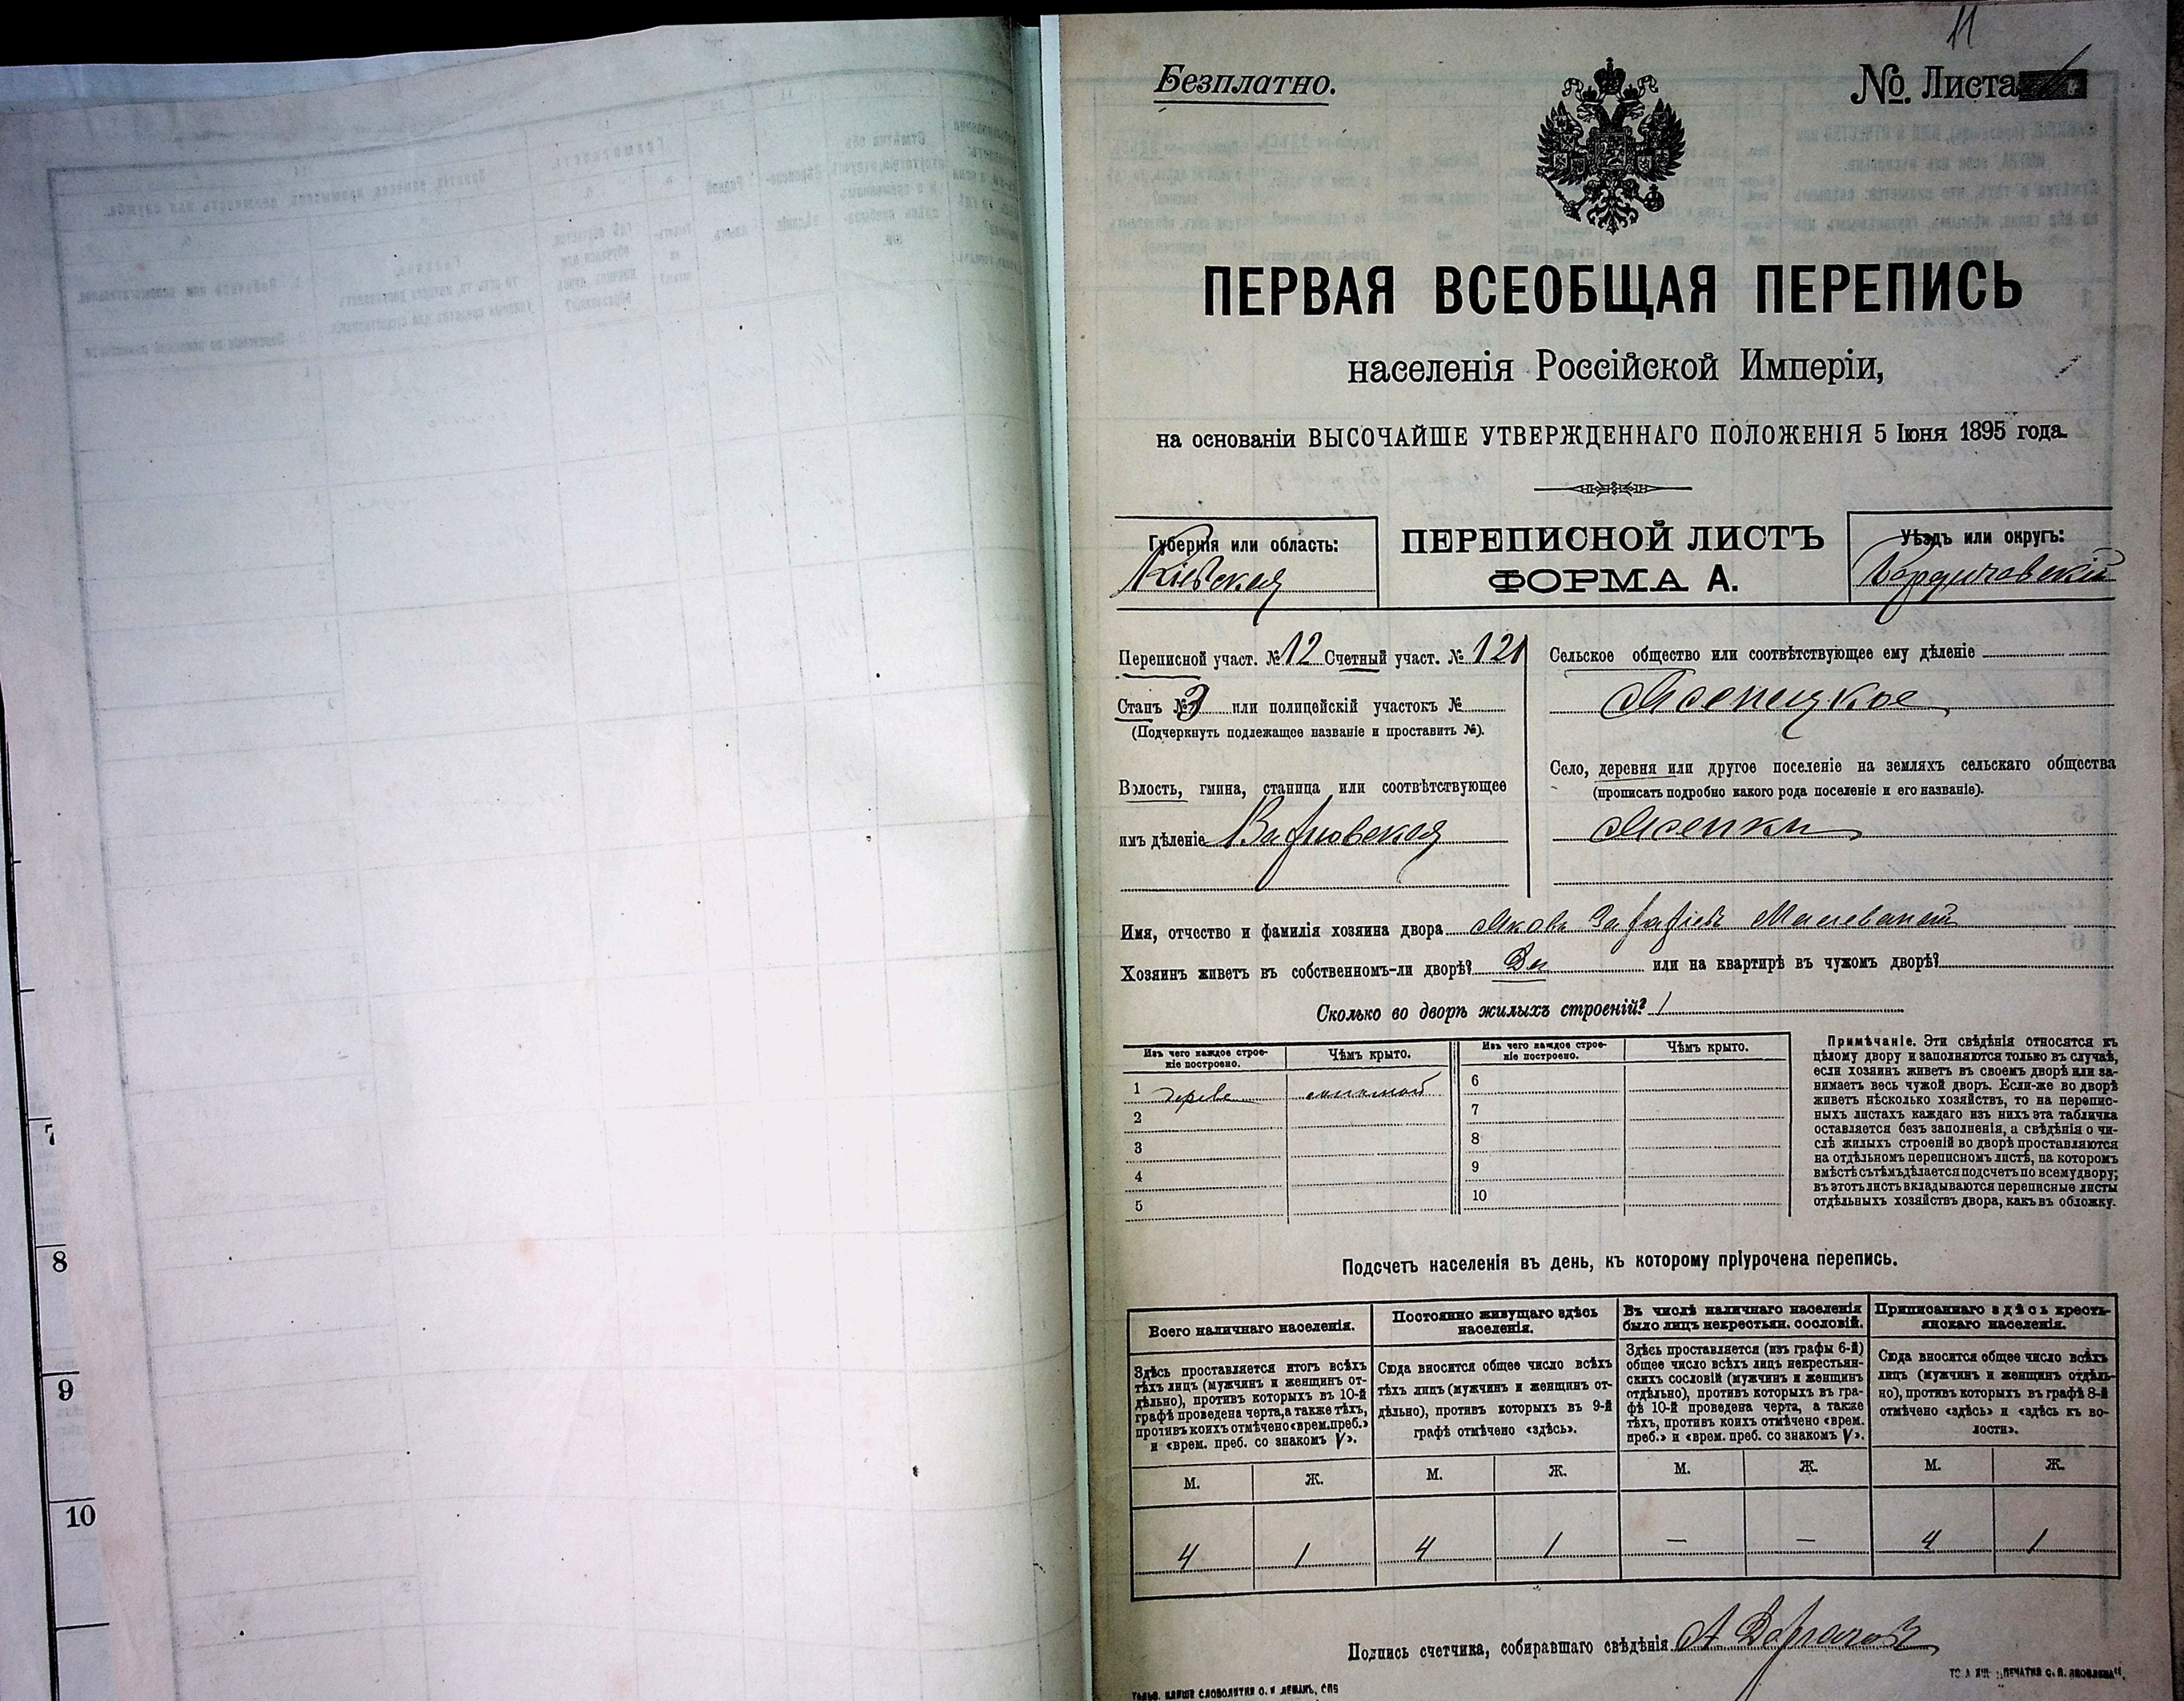 11
Безплатно.
№ Листа
ПЕРВАЯ ВСЕОБЩАЯ ПЕРЕПИСЬ
населенія Россійской Имперіи,
на основаніи ВЫСОЧАЙШЕ УТВЕРЖДЕННАГО ПОЛОЖЕНІЯ 5 Іюня 1895 года.
Губернія или область:
Кіевская
ПЕРЕПИСНОЙ ЛИСТЪ
ФОРМА А.
Уѣздъ или округъ:
Бердичевскій
Переписной участ. № 12 Счетный участ. № 121
Станъ № 3 или полицейскій участокъ №
(Подчеркнуть подлежащее названіе и проставить №).
Волость, гмина, станица или соотвѣтствующее
имъ дѣленіе
Сельское общество или соотвѣтствующее ему дѣленіе
Село, деревня или другое поселеніе на земляхъ сельскаго общества
(прописать подробно какого рода поселеніе и его названіе).
Имя, отчество и фамилія хозяина двора Яковъ
Хозяинъ живетъ въ собственномъ-ли дворѣ? Да или на квартирѣ въ чужомъ дворѣ?
Сколько во дворѣ жилыхъ строеній? 1
Изъ чего каждое строе-
ніе построено.
Чѣмъ крыто.
Изъ чего каждое строе-
ніе построено.
Чѣмъ крыто.
1 дерева соломой
2
3
4
5
6
7
8
9
10
Примѣчаніе. Эти свѣдѣнія относятся къ
цѣлому двору и заполняются только въ случаѣ,
если хозяинъ живетъ въ своемъ дворѣ или за-
нимаетъ весь чужой дворъ. Если-же во дворѣ
живетъ нѣсколько хозяйствъ, то на перепис-
ныхъ листахъ каждаго изъ нихъ эта табличка
оставляется безъ заполненія, а свѣдѣнія о чи-
слѣ жилыхъ строеній во дворѣ проставляются
на отдѣльномъ переписномъ листѣ, на которомъ
вмѣстѣ съ тѣмъ дѣлается подсчетъ по всему двору;
въ этотъ листъ вкладываются переписные листы
отдѣльныхъ хозяйствъ двора, какъ въ обложку.
Подсчетъ населенія въ день, къ которому пріурочена перепись.
Всего наличнаго населенія.
Здѣсь проставляется итогъ всѣхъ
тѣхъ лицъ (мужчинъ и женщинъ от-
дѣльно), противъ которыхъ въ 10-й
графѣ проведена черта, а также тѣхъ,
противъ коихъ отмѣчено «врем. преб.»
и «врем. преб. со знакомъ V».
Постоянно живущаго здѣсь
населенія.
Сюда вносится общее число всѣхъ
тѣхъ лицъ (мужчинъ и женщинъ от-
дѣльно), противъ которыхъ въ 9-й
графѣ отмѣчено «здѣсь».
Въ числѣ наличнаго населенія
было лицъ некрестьян. сословій.
Здѣсь проставляется (изъ графы 6-й)
общее число всѣхъ лицъ некрестьян-
скихъ сословій (мужчинъ и женщинъ
отдѣльно), противъ которыхъ въ гра-
фѣ 10-й проведена черта, а также
тѣхъ, противъ коихъ отмѣчено «врем.
преб.» и «врем. преб. со знакомъ V».
Приписаннаго здѣсь кресть-
янскаго населенія.
Сюда вносится общее число всѣхъ
лицъ (мужчинъ и женщинъ отдѣль-
но), противъ которыхъ въ графѣ 8-й
отмѣчено «здѣсь» и «здѣсь къ во-
лости».
М. Ж. М. Ж. М. Ж. М. Ж.
4 1 4 1 — — 4 1
Подпись счетчика, собиравшаго свѣдѣнія
7
8
9
10